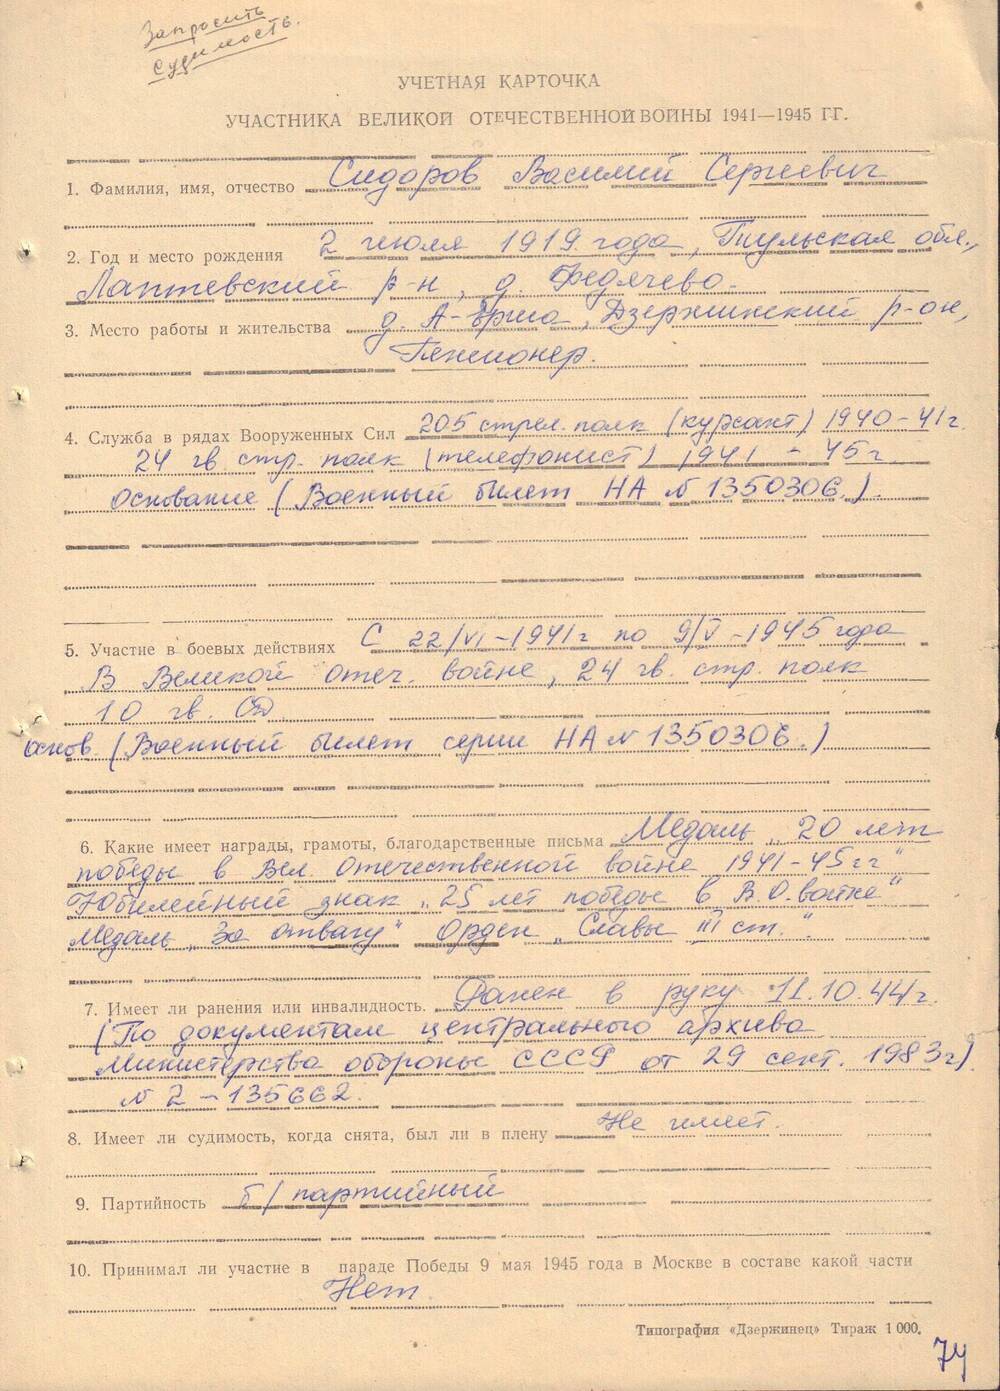 Запросить
судимость.
УЧЕТНАЯ КАРТОЧКА
УЧАСТНИКА ВЕЛИКОЙ ОТЕЧЕСТВЕННОЙ ВОЙНЫ 1941—1945 ГГ.
1. Фамилия, имя, отчество Сидоров Василий Сергеевич
2. Год и место рождения 2 июля 1919 года, Тульская обл.,
Лаптевский р-н, д. Федячево.
3. Место работы и жительства д. А-Ерша, Дзержинский р-он,
Пенсионер.
4. Служба в рядах Вооруженных Сил 205 стрел. полк (курсант) 1940-41г.
24 гв. стр. полк (телефонист) 1941 - 45г
основание (Военный билет НА № 1350306.).
5. Участие в боевых действиях С 22/VI-1941г по 9/V-1945 года
В Великой отеч. войне, 24 гв. стр. полк
10 гв. СД.
основ. (Военный билет серии НА № 1350306.)
6. Какие имеет награды, грамоты, благодарственные письма Медаль „20 лет
победы в Вел. Отечественной войне 1941-45гг“
Юбилейный знак „25 лет победы в В.О.войне“
Медаль „За отвагу“ Орден „Славы III ст.“
7. Имеет ли ранения или инвалидность. Ранен в руку 11.10.44г.
(По документам центрального архива
Министерства обороны СССР от 29 сент. 1983г).
№ 2-135662.
8. Имеет ли судимость, когда снята, был ли в плену Не имеет.
9. Партийность б/партийный
10. Принимал ли участие в параде Победы 9 мая 1945 года в Москве в составе какой части
Нет
Типография «Дзержинец» Тираж 1 000.
74